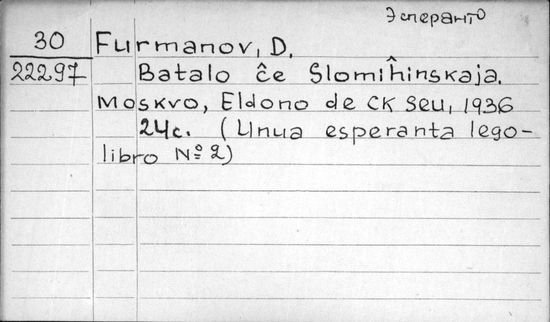 Эсперанто
30 Furmanov, D.
22297 Batalo ĉe Slomiĥinskaja.
Moskvo, Eldono de CK SEU, 1936
24c. (Unua esperanta lego-
libro № 2)